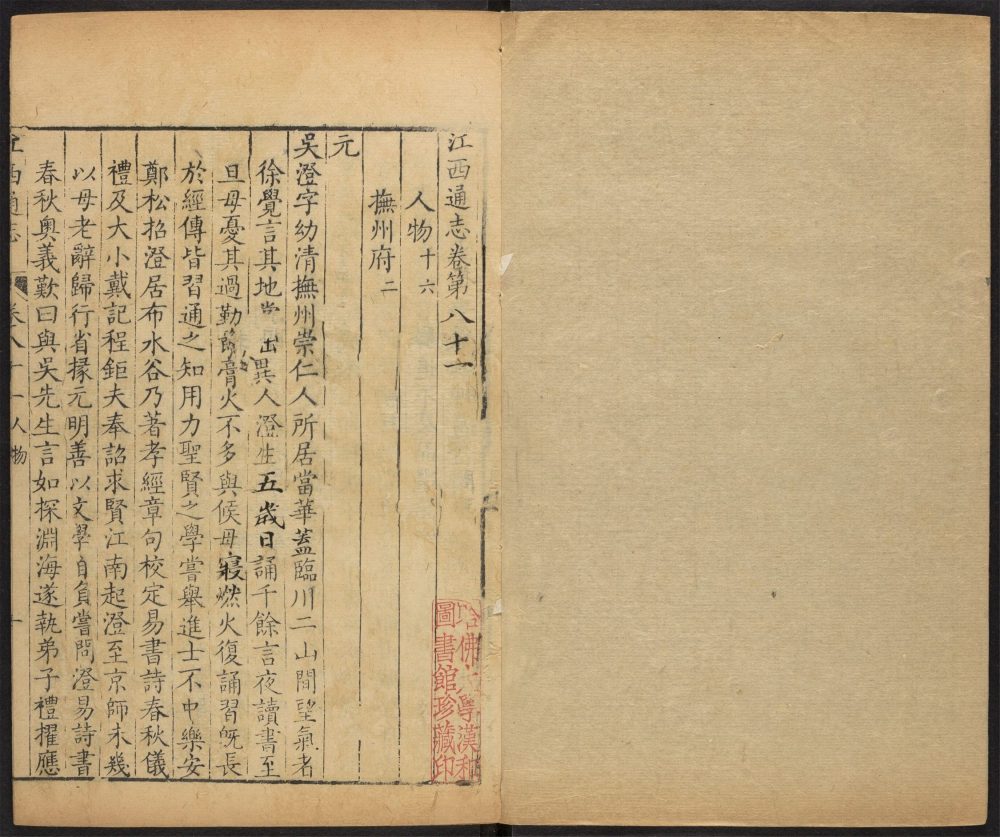 江西通志卷第八十一
人物十六
撫州府二
元
吳澄字幼清撫州崇仁人所居當華葢臨川二山間望氣者
徐覺言其地當出異人澄生五歲日誦千餘言夜讀書至
旦母憂其過勤節膏火不多與候母寢燃火復誦習旣長
於經傳皆習通之知用力聖賢之學嘗舉進士不中樂安
鄭松招澄居布水谷乃著孝經章句校定易書詩春秋儀
禮及大小戴記程鉅夫奉詔求賢江南起澄至京師未幾
以母老辭歸行省掾元明善以文學自負嘗問澄易詩書
春秋奧義歎曰與吳先生言如探淵海遂執弟子禮擢應
江西通志 卷八十一 人物 一
哈佛大學漢和
圖書館珍藏印